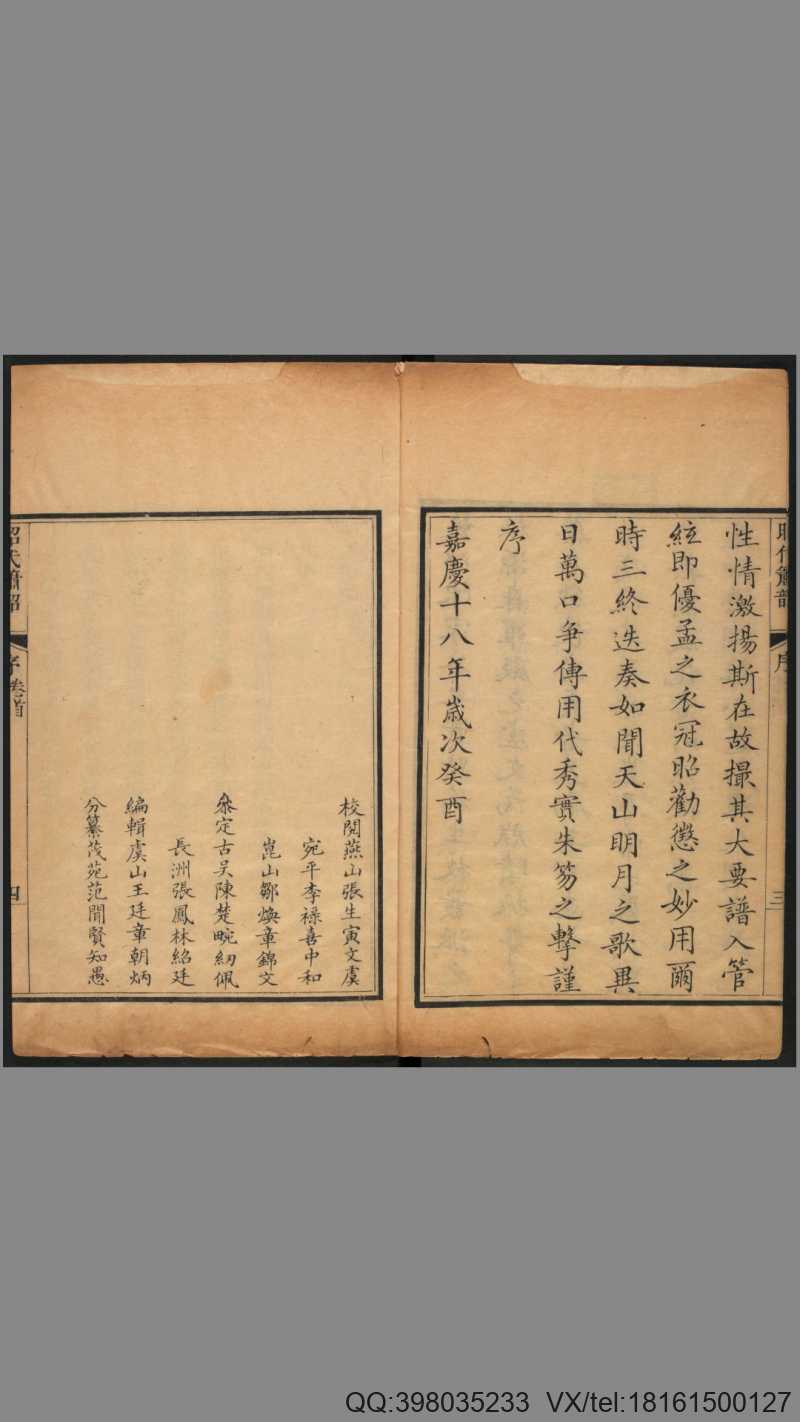 昭代簫韶
序
三
性情激揚斯在故撮其大要譜入管
絃即優孟之衣冠昭勸懲之妙用爾
時三終迭奏如聞天山明月之歌異
日萬口爭傳用代秀實朱笏之擊謹
序
嘉慶十八年歲次癸酉
校閱燕山張生寅文虞
宛平李祿喜中和
崑山鄒煥章錦文
叅定古吴陳楚畹紉佩
長洲張鳳林紹廷
編輯虞山王廷章朝炳
分纂茂苑范聞賢知愚
昭代簫韶
序卷首
四
QQ:398035233 VX/tel:18161500127